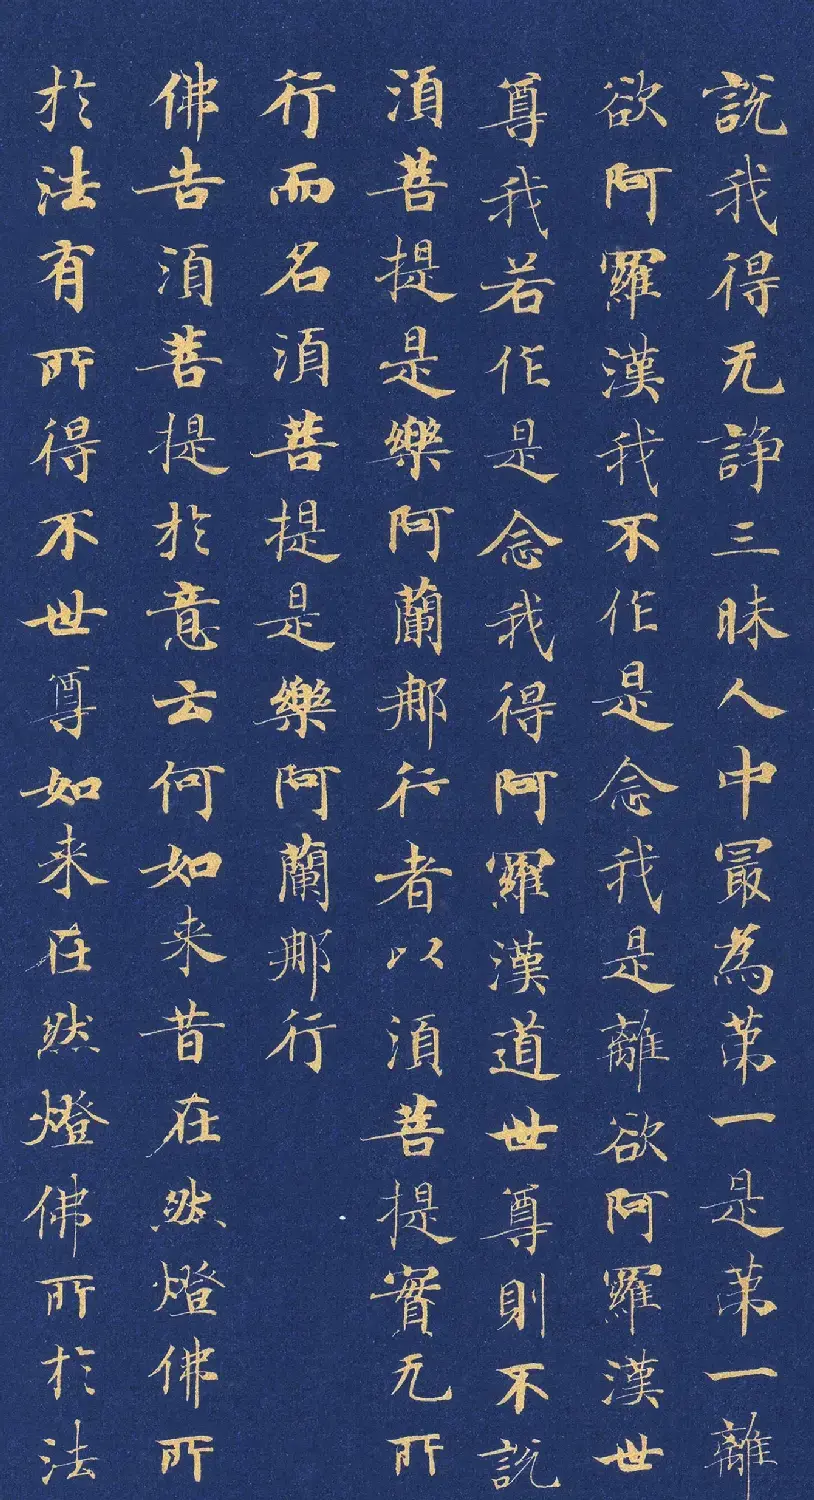 說我得无諍三昧人中冣為苐一是苐一離
欲阿羅漢我不作是念我是離欲阿羅漢世
尊我若作是念我得阿羅漢道世尊則不說
湏菩提是樂阿蘭那行者以湏菩提實无所
行而名湏菩提是樂阿蘭那行
佛告湏菩提於意云何如来昔在然燈佛所
於法有所得不世尊如来在然燈佛所於法